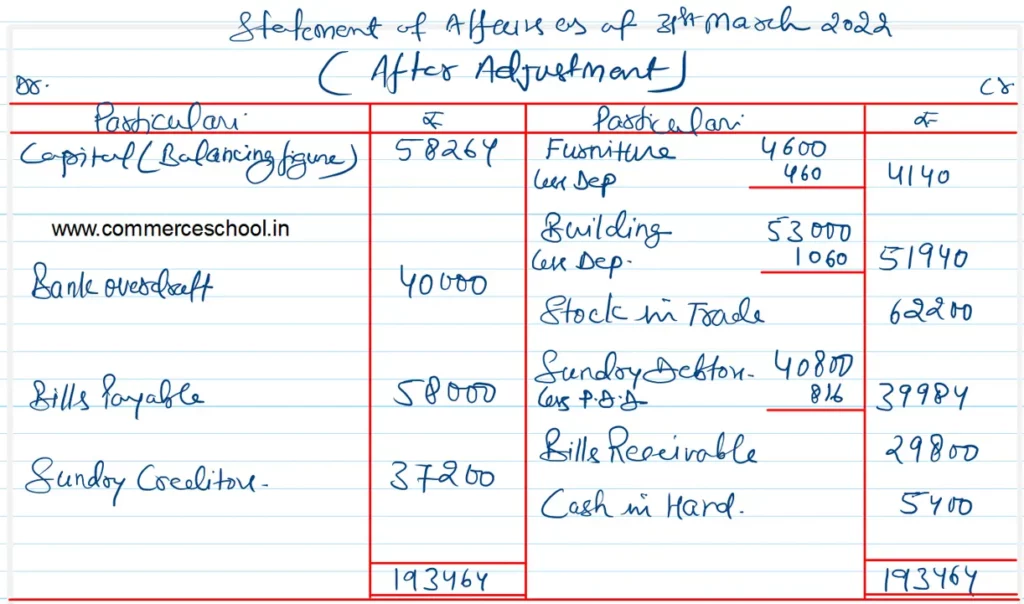 Statement of Affairs as of 31st March 2022
(After Adjustment)
Dr. Cr
Particulars ₹ Particulars ₹
Capital (Balancing figure) 58264 Furniture 4600
Less Dep 460 4140
www.commerceschool.in
Building 53000
Less Dep. 1060 51940
Bank overdraft 40000
Stock in Trade 62200
Sundry Debtors. 40800
Less P.D.D 816 39984
Bills Payable 58000
Bills Receivable 29800
Sundry Creditors. 37200
Cash in Hand. 5400
193464 193464